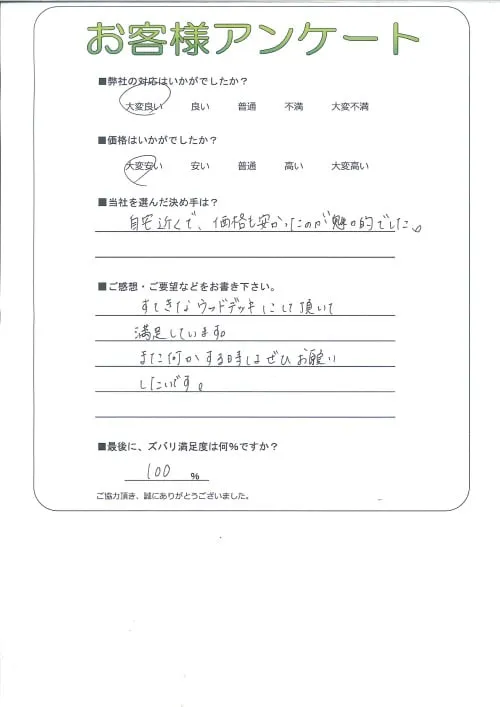 お客様アンケート
■弊社の対応はいかがでしたか？
大変良い 良い 普通 不満 大変不満
■価格はいかがでしたか？
大変安い 安い 普通 高い 大変高い
■当社を選んだ決め手は？
自宅近くで、価格も安かったのが魅力的でした。
■ご感想・ご要望などをお書き下さい。
すてきなウッドデッキにして頂いて
満足しています。
また何かする時はぜひお願い
したいです。
■最後に、ズバリ満足度は何%ですか？
100 %
ご協力頂き、誠にありがとうございました。